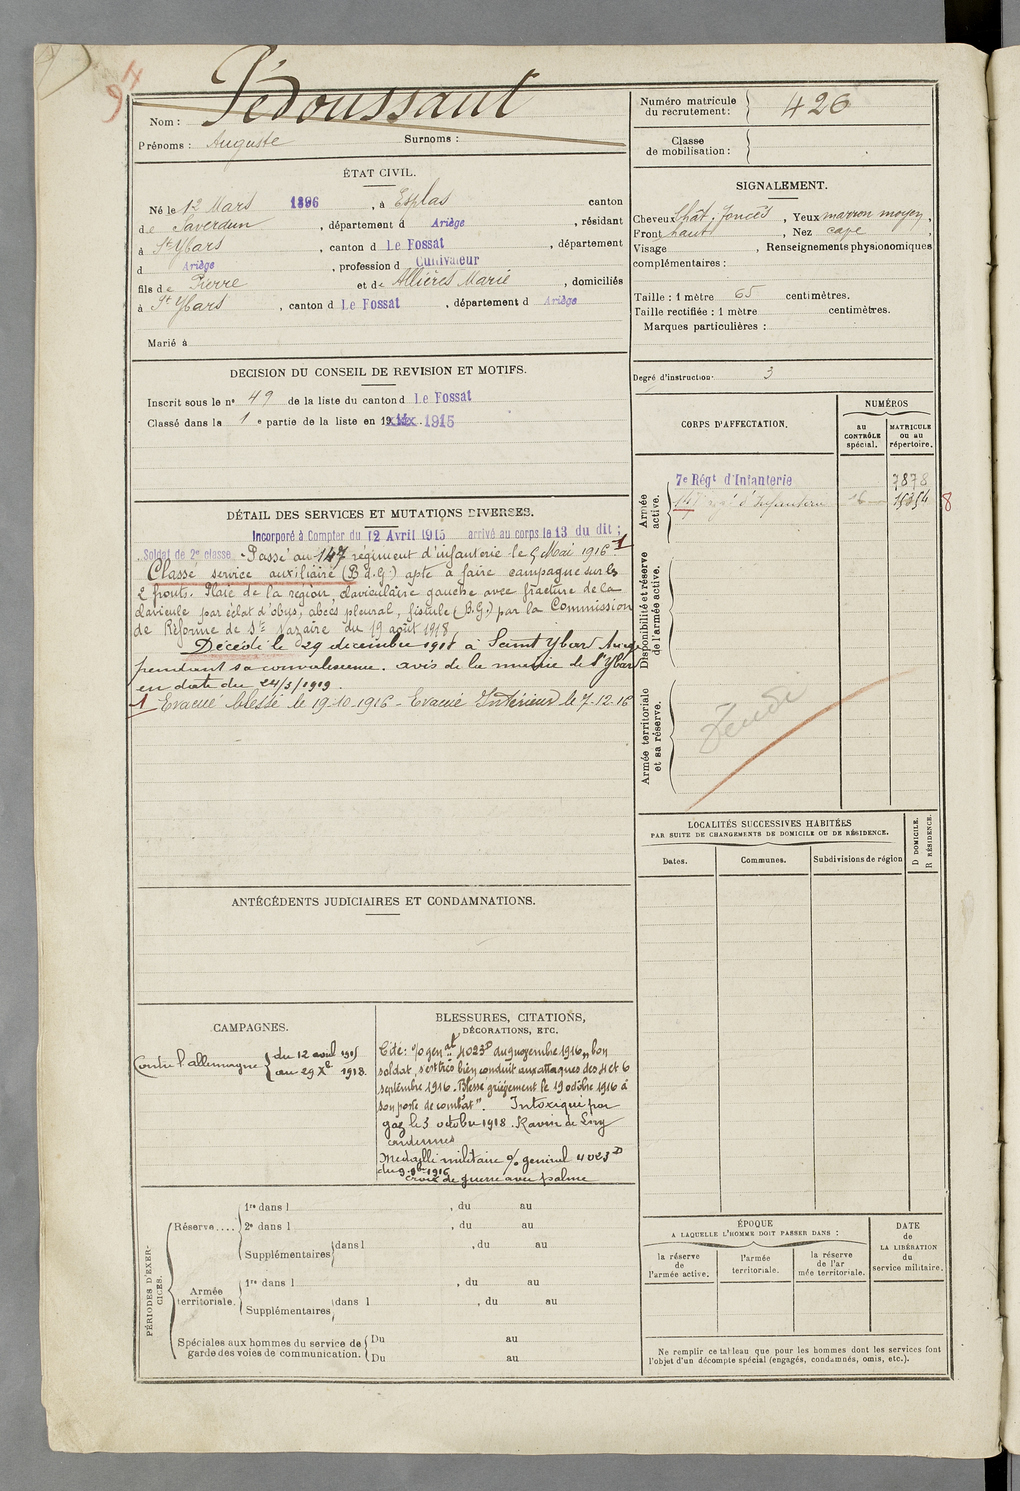 94
Nom : Pédoussaut
Prénoms : Auguste Surnoms :
ÉTAT CIVIL.
Né le 12 Mars 1896, à Esplas canton
de Saverdun, département d Ariège, résidant
à St Ybars, canton d Le Fossat, département
d Ariège, profession d Cultivateur
fils de Pierre et de Allières Marie, domiciliés
à St Ybars, canton d Le Fossat, département d Ariège
Marié à
DECISION DU CONSEIL DE REVISION ET MOTIFS.
Inscrit sous le n° 49 de la liste du canton d Le Fossat
Classé dans la 1e partie de la liste en 19 1915
DÉTAIL DES SERVICES ET MUTATIONS DIVERSES.
Incorporé à Compter du 12 Avril 1915 arrivé au corps le 13 du dit ;
Soldat de 2e classe. Passé au 147 régiment d'infanterie le 5 Mai 1916 1
Classé service auxiliaire (B.d.G.) apte à faire campagne sur les
2 fronts. Plaie de la région claviculaire gauche avec fracture de la
clavicule par éclat d'obus, abcès pleural, fistule (B.G.) par la Commission
de Réforme de St Nazaire du 19 août 1918
Décédé le 29 décembre 1918 à Saint Ybars Ariège
pendant sa convalescence. avis de la mairie de St Ybars
en date du 24/3/1919.
1 Evacué blessé le 19-10-1916 - Evacué Intérieur le 7.12.16
ANTÉCÉDENTS JUDICIAIRES ET CONDAMNATIONS.
CAMPAGNES.
Contre l'allemagne { du 12 avril 1915
au 29 Xbre 1918.
BLESSURES, CITATIONS,
DÉCORATIONS, ETC.
Cité : O/ Gen al n° 4023 D du 9 novembre 1916 "bon
soldat, s'est très bien conduit aux attaques des 4 et 6
septembre 1916. Blessé grièvement le 19 octobre 1916 à
son poste de combat". Intoxiqué par
gaz le 3 octobre 1918. Ravin de
ardennes
Médaille militaire O/ général 4023 D
du 9-9bre 1916
croix de guerre avec palme
PÉRIODES D'EXER-
CICES.
Réserve.... { 1re dans l , du au
2e dans l , du au
Supplémentaires { dans l , du au
Armée
territoriale. { 1re dans l , du au
Supplémentaires { dans l , du au
Spéciales aux hommes du service de
garde des voies de communication. { Du au
Du au
Numéro matricule
du recrutement : 426
Classe
de mobilisation :
SIGNALEMENT.
Cheveux chât. foncés, Yeux marron moyen,
Front haut, Nez cave,
Visage , Renseignements physionomiques
complémentaires :
Taille : 1 mètre 65 centimètres.
Taille rectifiée : 1 mètre centimètres.
Marques particulières :
Degré d'instruction. 3
CORPS D'AFFECTATION.
NUMÉROS
au
CONTRÔLE
spécial.
MATRICULE
ou au
répertoire.
Armée
active.
7e Régt d'Infanterie 7878
147 régt d'Infanterie 8
Disponibilité et réserve
de l'armée active.
Armée territoriale
et sa réserve.
LOCALITÉS SUCCESSIVES HABITÉES
PAR SUITE DE CHANGEMENTS DE DOMICILE OU DE RÉSIDENCE.
Dates. Communes. Subdivisions de région
D DOMICILE.
R RÉSIDENCE.
ÉPOQUE
A LAQUELLE L'HOMME DOIT PASSER DANS :
la réserve
de
l'armée active.
l'armée
territoriale.
la réserve
de l'ar
mée territoriale.
DATE
de
LA LIBÉRATION
du
service militaire.
Ne remplir ce tableau que pour les hommes dont les services font
l'objet d'un décompte spécial (engagés, condamnés, omis, etc.).